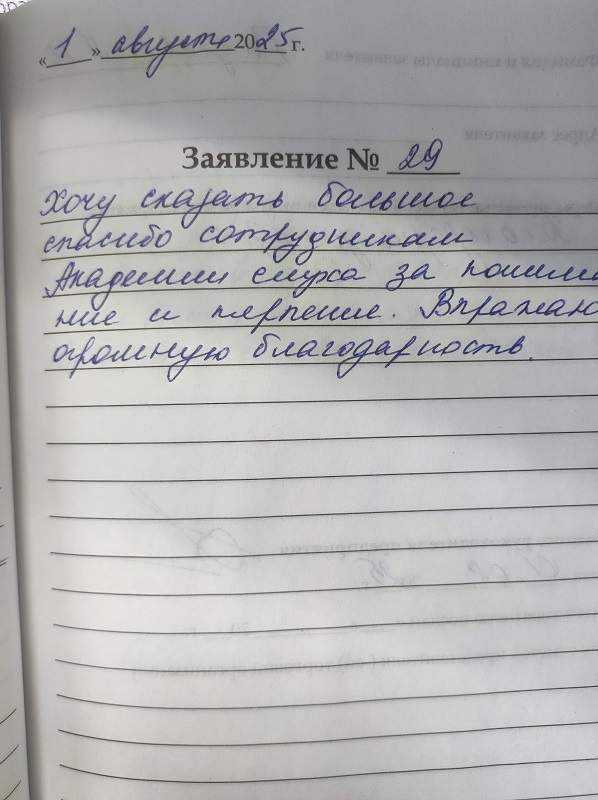 « 1 » августа 2025 г.
Заявление № 29
Хочу сказать большое
спасибо сотрудникам
Академии слуха за понима
ние и терпение. Выражаю
огромную благодарность.